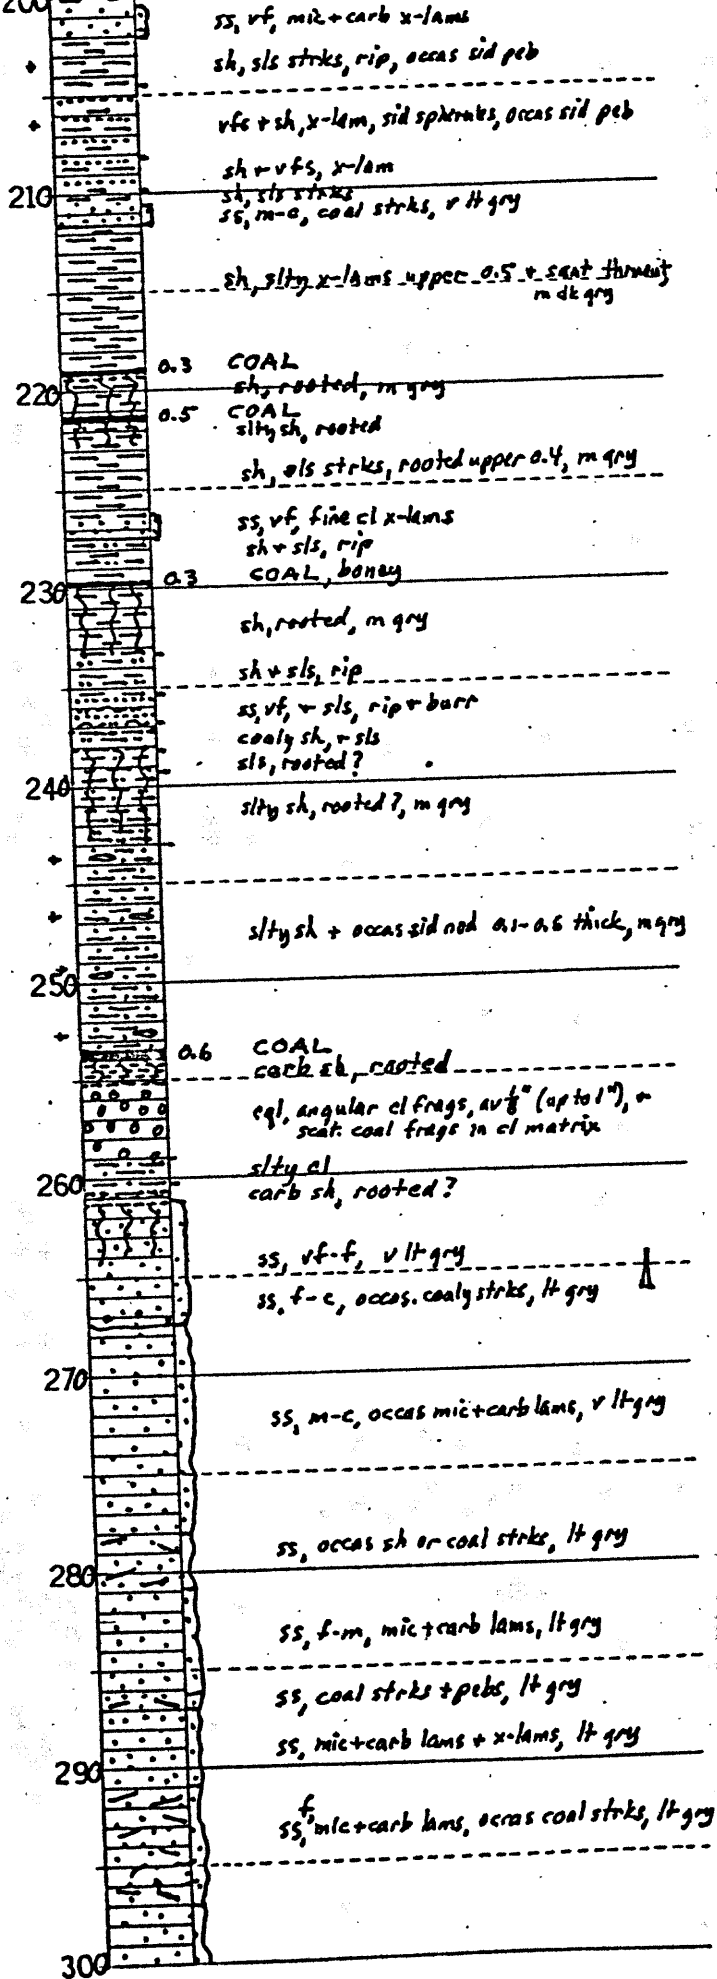 200
ss, vf, mic + carb x-lams
sh, sls strks, rip, occas sid peb
vfs + sh, x-lam, sid spherules, occas sid peb
sh + vfs, x-lam
210
sh, sls strks
ss, m-c, coal strks, v lt gry
sh, slty x-lams upper 0.5 +
m dk gry
0.3 COAL
220
sh, rooted, m gry
0.5 COAL
slty sh, rooted
sh, sls strks, rooted upper 0.4, m gry
ss, vf, fine cl x-lams
sh + sls, rip
230
0.3 COAL, boney
sh, rooted, m gry
sh + sls, rip
ss, vf, + sls, rip + burr
coaly sh, + sls
sls, rooted?
240
slty sh, rooted?, m gry
slty sh + occas sid nod 0.1-0.6 thick, m gry
250
0.6 COAL
carb sh, rooted
cgl, angular cl frags, av 1/8" (up to 1"), +
scat. coal frags in cl matrix
slty cl
260
carb sh, rooted?
ss, vf-f, v lt gry
ss, f-c, occas. coaly strks, lt gry
270
ss, m-c, occas mic + carb lams, v lt gry
ss, occas sh or coal strks, lt gry
280
ss, f-m, mic + carb lams, lt gry
ss, coal strks + pebs, lt gry
ss, mic + carb lams + x-lams, lt gry
290
ss, f, mic + carb lams, occas coal strks, lt gry
300